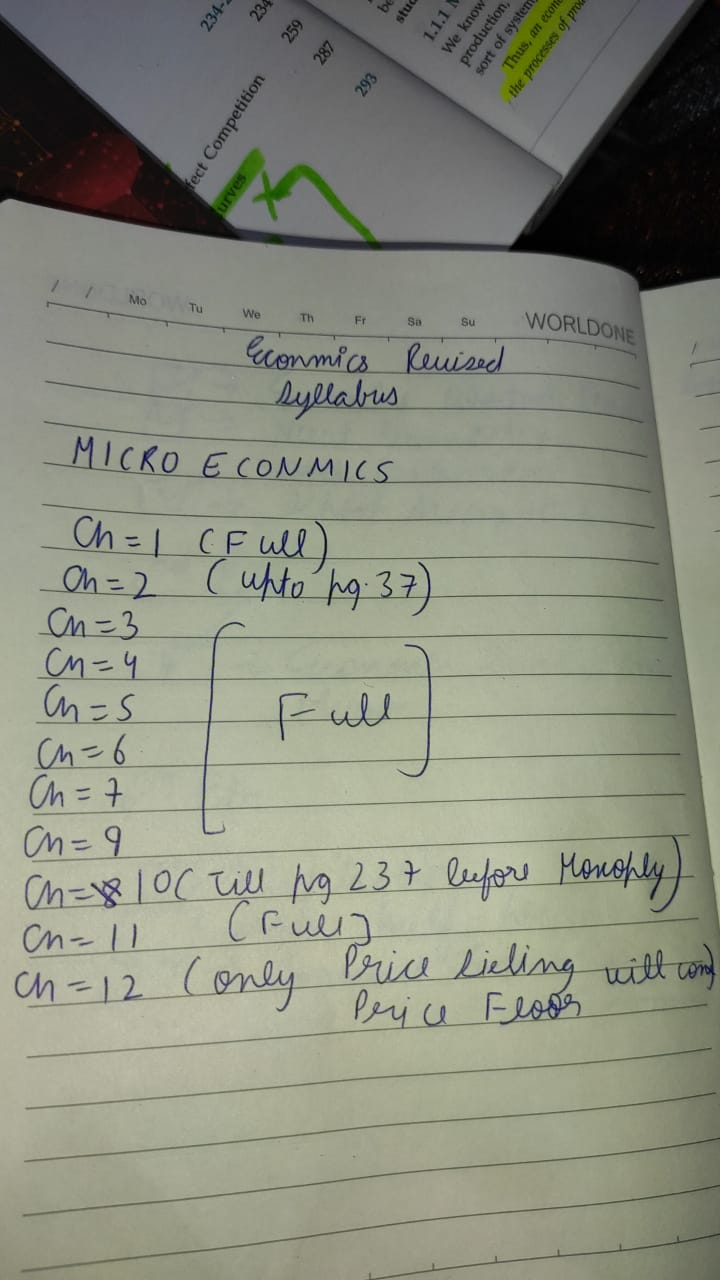 234-
234
259
287
293
fect Competition
urves
be
stud
1.1.1
We know
production,
sort of system
Thus, an econ
the processes of prod
/ / Mo Tu We Th Fr Sa Su WORLDONE
Econmics Reuised
Syllabus
MICRO ECONMICS
Ch = 1 (Full)
Ch = 2 (upto pg. 37)
Ch = 3
Ch = 4
Ch = 5 [Full]
Ch = 6
Ch = 7
Ch = 9
Ch = 10 ( Till pg 237 before Monoply)
Ch = 11 (Full]
Ch = 12 (only Price will
Price Floor